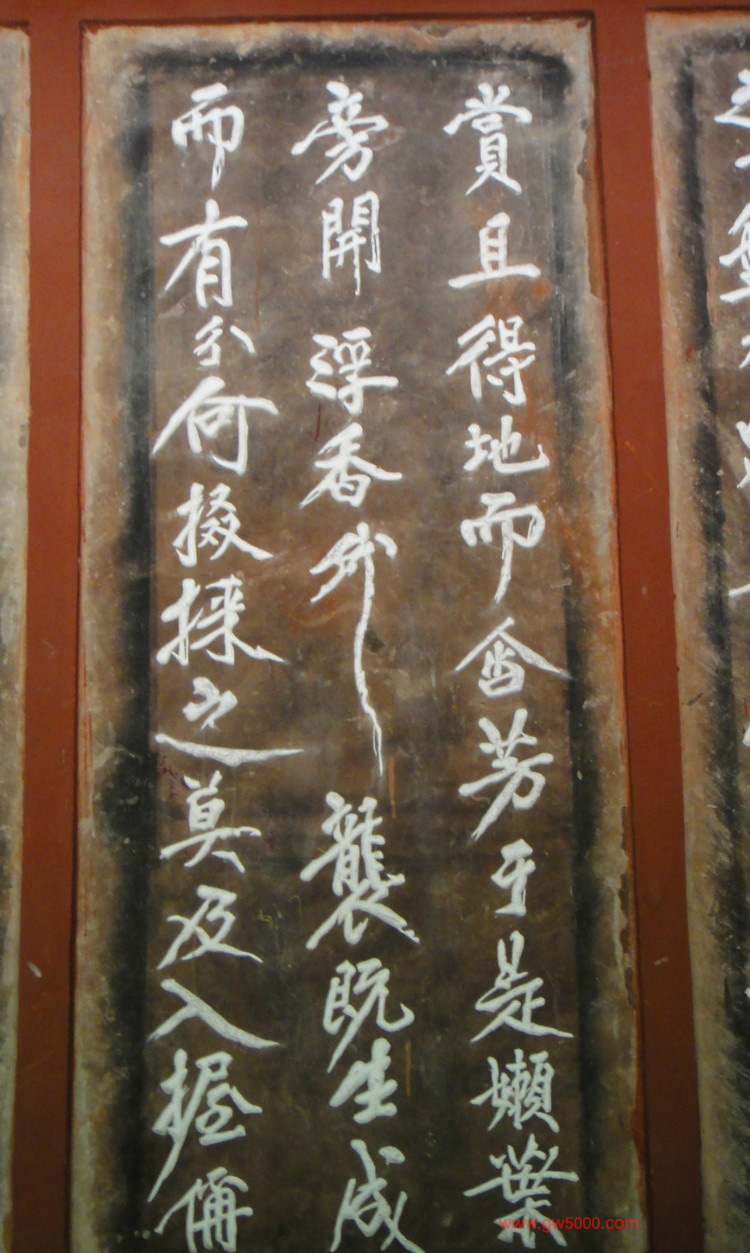 賞且得地而含芳于是嫩葉
旁開浮香外襲既生成
而有分何掇採之莫及入握
www.gw5000.com